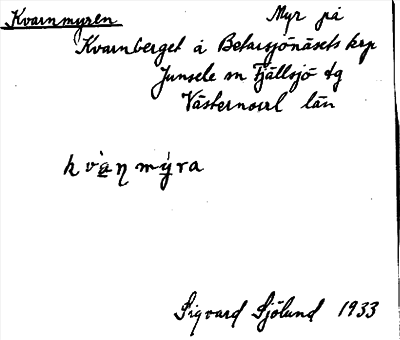 Kvarnmyren Myr på
Kvarnberget å Betarsjönäsets krp
Junsele sn Fjällsjö tg
Västernorrl län
kvàṇmýra
Sigvard Sjölund 1933